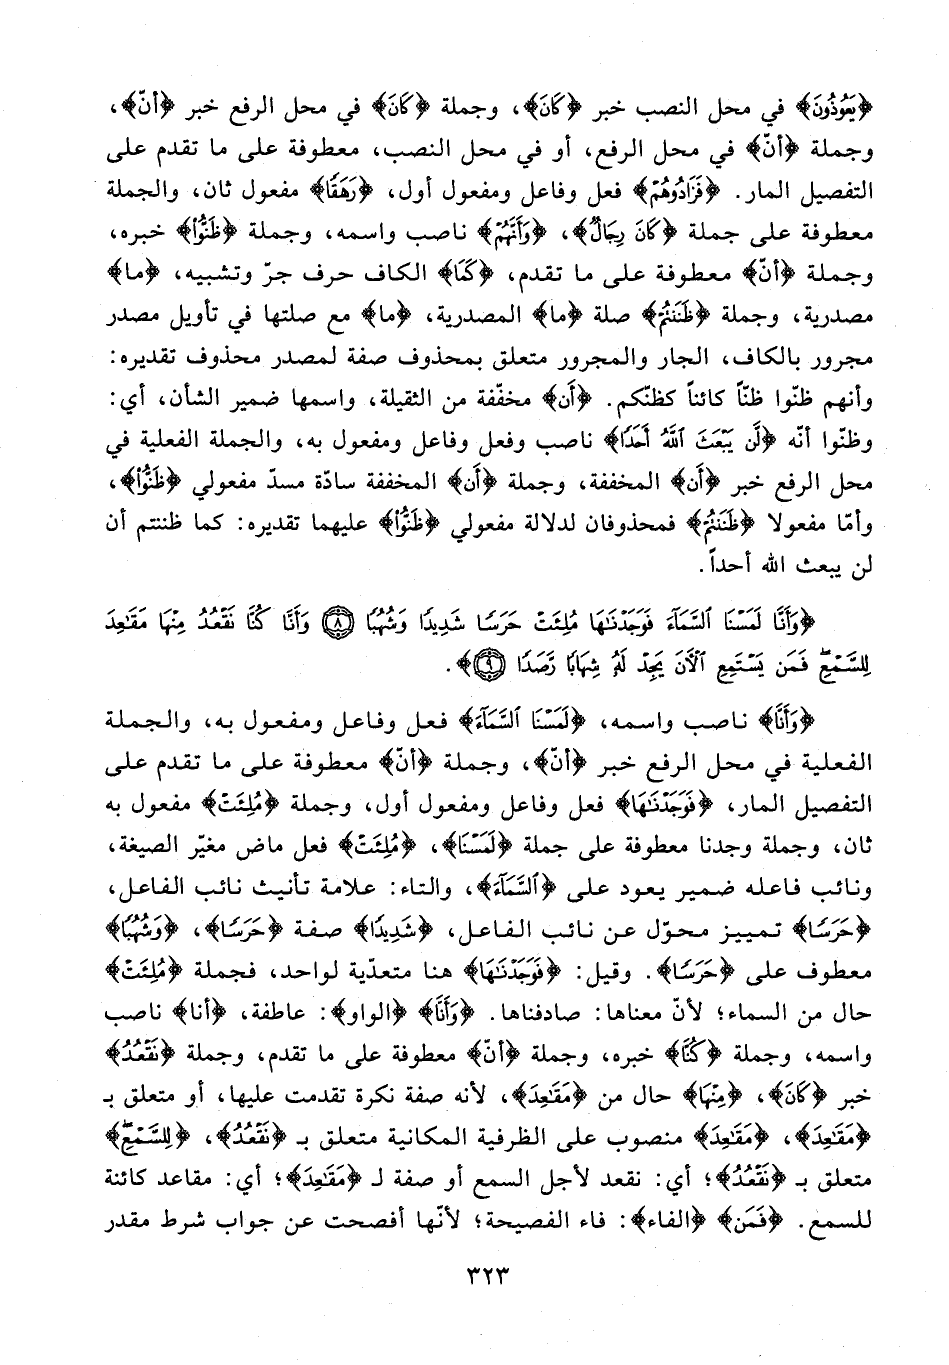 ﴿يَعُوذُونَ﴾ في محل النصب خبر ﴿كَانَ﴾، وجملة ﴿كَانَ﴾ في محل الرفع خبر ﴿أنّ﴾،
وجملة ﴿أنّ﴾ في محل الرفع، أو في محل النصب، معطوفة على ما تقدم على
التفصيل المار. ﴿فَزَادُوهُمْ﴾ فعل وفاعل ومفعول أول، ﴿رَهَقًا﴾ مفعول ثان، والجملة
معطوفة على جملة ﴿كَانَ رِجَالٌ﴾، ﴿وَأَنَّهُمْ﴾ ناصب واسمه، وجملة ﴿ظَنُّوا۟﴾ خبره،
وجملة ﴿أنّ﴾ معطوفة على ما تقدم، ﴿كَمَا﴾ الكاف حرف جرّ وتشبيه، ﴿ما﴾
مصدرية، وجملة ﴿ظَنَنتُمْ﴾ صلة ﴿ما﴾ المصدرية، ﴿ما﴾ مع صلتها في تأويل مصدر
مجرور بالكاف، الجار والمجرور متعلق بمحذوف صفة لمصدر محذوف تقديره:
وأنهم ظنّوا ظنّاً كائناً كظنّكم. ﴿أَن﴾ مخفّفة من الثقيلة، واسمها ضمير الشأن، أي:
وظنّوا أنّه ﴿لَّن يَبْعَثَ ٱللَّهُ أَحَدًا﴾ ناصب وفعل وفاعل ومفعول به، والجملة الفعلية في
محل الرفع خبر ﴿أَن﴾ المخففة، وجملة ﴿أَن﴾ المخففة سادّة مسدّ مفعولي ﴿ظَنُّوا۟﴾،
وأمّا مفعولا ﴿ظَنَنتُمْ﴾ فمحذوفان لدلالة مفعولي ﴿ظَنُّوا۟﴾ عليهما تقديره: كما ظننتم أن
لن يبعث الله أحداً.
﴿وَأَنَّا لَمَسْنَا ٱلسَّمَآءَ فَوَجَدْنَٰهَا مُلِئَتْ حَرَسًا شَدِيدًا وَشُهُبًا ٨ وَأَنَّا كُنَّا نَقْعُدُ مِنْهَا مَقَٰعِدَ
لِلسَّمْعِ ۖ فَمَن يَسْتَمِعِ ٱلْءَانَ يَجِدْ لَهُۥ شِهَابًا رَّصَدًا ٩﴾.
﴿وَأَنَّا﴾ ناصب واسمه، ﴿لَمَسْنَا ٱلسَّمَآءَ﴾ فعل وفاعل ومفعول به، والجملة
الفعلية في محل الرفع خبر ﴿أنّ﴾، وجملة ﴿أنّ﴾ معطوفة على ما تقدم على
التفصيل المار، ﴿فَوَجَدْنَٰهَا﴾ فعل وفاعل ومفعول أول، وجملة ﴿مُلِئَتْ﴾ مفعول به
ثان، وجملة وجدنا معطوفة على جملة ﴿لَمَسْنَا﴾، ﴿مُلِئَتْ﴾ فعل ماض مغيّر الصيغة،
ونائب فاعله ضمير يعود على ﴿ٱلسَّمَآءَ﴾، والتاء: علامة تأنيث نائب الفاعل،
﴿حَرَسًا﴾ تمييز محوّل عن نائب الفاعل، ﴿شَدِيدًا﴾ صفة ﴿حَرَسًا﴾، ﴿وَشُهُبًا﴾
معطوف على ﴿حَرَسًا﴾. وقيل: ﴿فَوَجَدْنَٰهَا﴾ هنا متعدّية لواحد، فجملة ﴿مُلِئَتْ﴾
حال من السماء؛ لأنّ معناها: صادفناها. ﴿وَأَنَّا﴾ ﴿الواو﴾: عاطفة، ﴿أنا﴾ ناصب
واسمه، وجملة ﴿كُنَّا﴾ خبره، وجملة ﴿أنّ﴾ معطوفة على ما تقدم، وجملة ﴿نَقْعُدُ﴾
خبر ﴿كَانَ﴾، ﴿مِنْهَا﴾ حال من ﴿مَقَٰعِدَ﴾، لأنه صفة نكرة تقدمت عليها، أو متعلق بـ
﴿مَقَٰعِدَ﴾، ﴿مَقَٰعِدَ﴾ منصوب على الظرفية المكانية متعلق بـ ﴿نَقْعُدُ﴾، ﴿لِلسَّمْعِ ۖ﴾
متعلق بـ ﴿نَقْعُدُ﴾؛ أي: نقعد لأجل السمع أو صفة لـ ﴿مَقَٰعِدَ﴾؛ أي: مقاعد كائنة
للسمع. ﴿فَمَن﴾ ﴿الفاء﴾: فاء الفصيحة؛ لأنّها أفصحت عن جواب شرط مقدر
٣٢٣